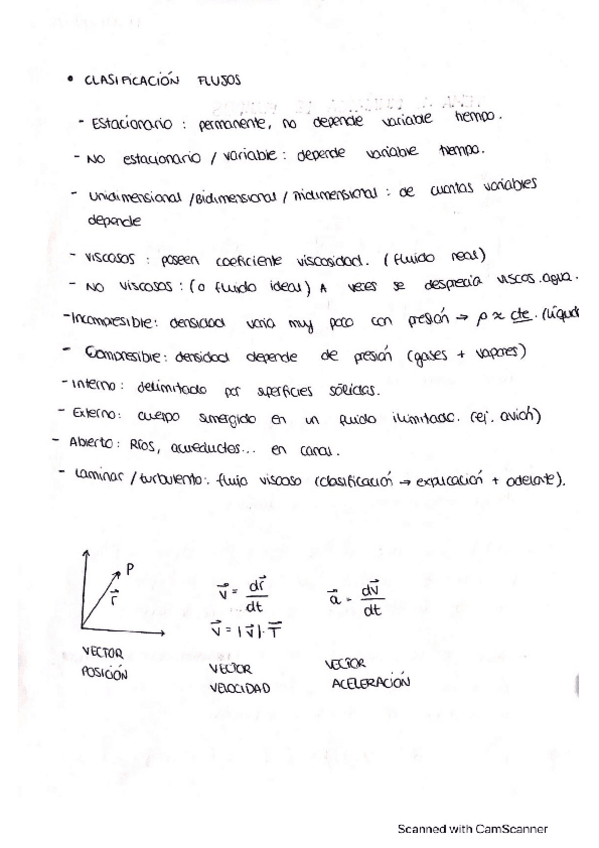 • CLASIFICACIÓN FLUJOS
- Estacionario : permanente, no depende variable tiempo.
- No estacionario / variable : depende variable tiempo.
- Unidimensional / Bidimensional / Tridimensional : de cuantas variables
depende
- Viscosos : poseen coeficiente viscosidad. (fluido real)
- No viscosos : (o fluido ideal) A veces se desprecia viscos. agua.
- Incompresible: densidad varia muy poco con presión → ρ ≈ cte. (líquid
- Compresible: densidad depende de presión (gases + vapores)
- Interno: delimitado por superficies sólidas.
- Externo: cuerpo sumergido en un fluido ilimitado. (ej. avión)
- Abierto: Ríos, acueductos... en canal.
- Laminar / turbulento: flujo viscoso (clasificación → explicación + adelante).
P
r⃗
v⃗ = dr⃗/dt
a⃗ = dv⃗/dt
v⃗ = |v⃗|·T⃗
VECTOR POSICIÓN
VECTOR VELOCIDAD
VECTOR ACELERACIÓN
Scanned with CamScanner